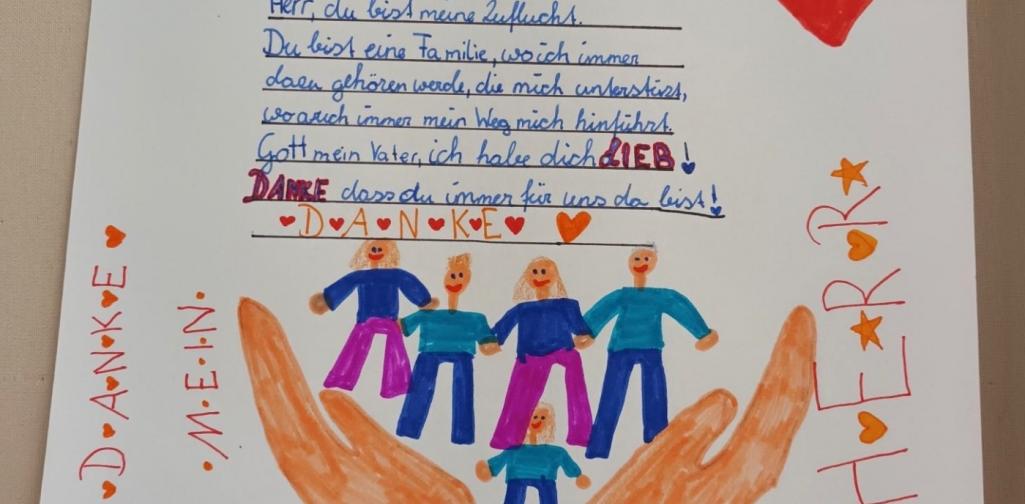 Herr, du bist meine Zuflucht.
Du bist eine Familie, wo ich immer
dazu gehören werde, die mich unterstüzt,
wo auch immer mein Weg mich hinführt.
Gott mein Vater, ich habe dich LIEB!
DANKE dass du immer für uns da bist!
DANKE
DANKE
MEIN
HERR